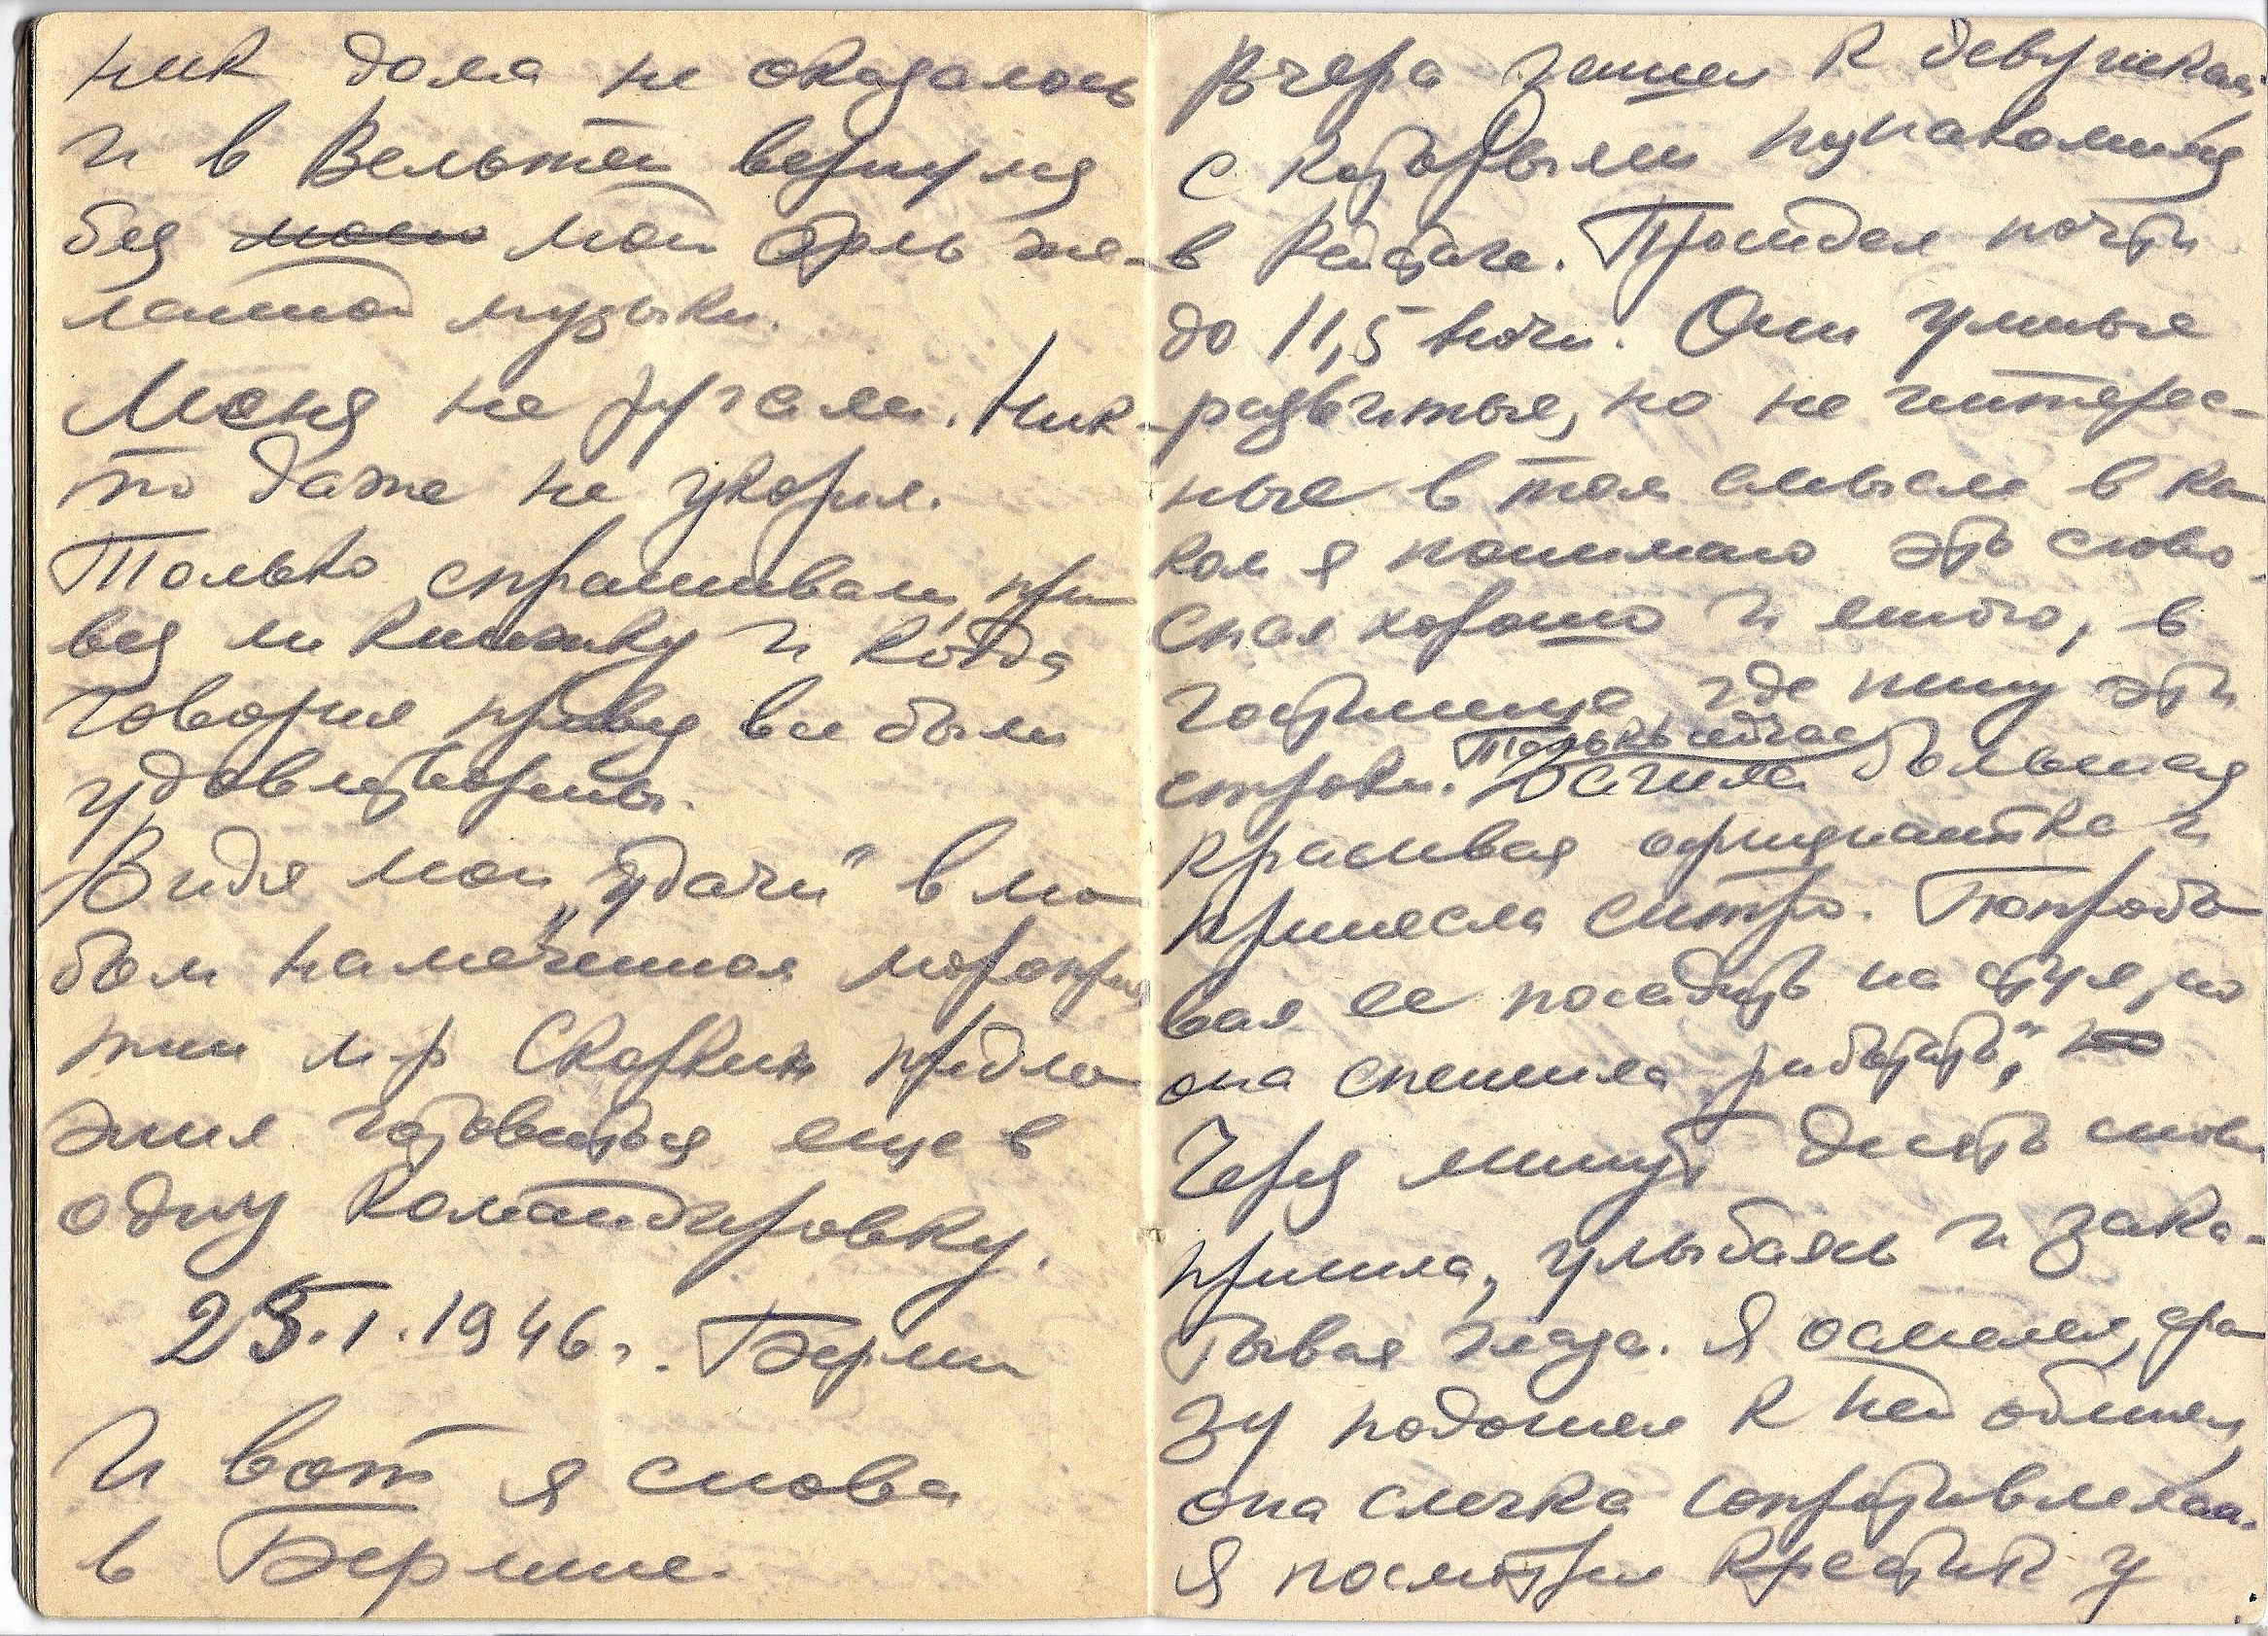 ник дома не оказалось
и в Вельтен вернулся
без моей столь же-
ланной музыки.
Меня не ругали. Ник-
то даже не укорил.
Только спрашивали, при
вез ли книжку и когда
говорил привез все были
удовлетворены.
Видя мои „удачи" в лю
бом намеченном меропри
тии м-р Скоркин предло
жил готовиться еще в
одну командировку.
25.I.1946г. Берлин
И вот я снова
в Берлине.
Вчера зашел к девушкам
с которыми познакомился
в Рейхстаге. Просидел почти
до 11,5 ночи. Они умные
развитые, но не интерес-
ные в том смысле в ка
ком я понимаю это слово.
Спал хорошо и много, в
гостинице где пишу эти
строки. Только сейчас была большая
красивая официантка и
принесла ситро. Попробо
вал ее посадить на стул, но
она спешила „работать",
Через минут десять снова
пришла, улыбаясь и зака-
тывая глаза. Я осмелел, сра
зу подошел к ней обнял,
она слегка сопротивлялась.
Я посмотрел крестик у